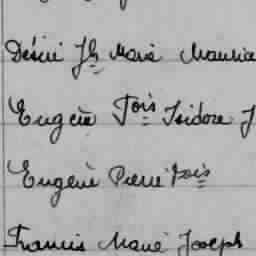 Désiré Jh Marie Maurice
Eugène Fois Isidore J
Eugène Pierre Fois
Francis Marie Joseph